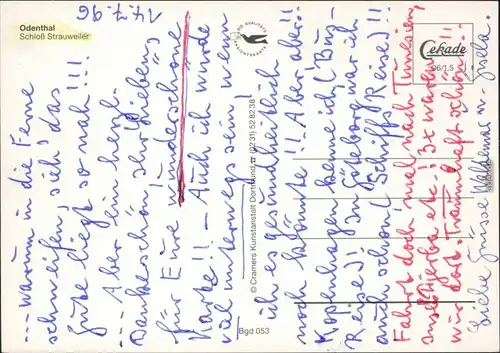 Odenthal
Schloß Strauweiler
14.7.96
--- warum in die Ferne
schweifen, sieh' das
Gute liegt so nah'!!!
--- Aber ein herzl.
Dankeschön, Ihr Lieben,
für Eure wunderschöne
Karte!! – Auch ich würde
viel unterwegs sein, wenn
ich es gesundheitlich
noch könnte!!! Aber aber!!
Kopenhagen kenne ich (Bus-
Reise)! In Göteborg war ich
auch schon (Schiffs Reise)!!
Fahrt doch 'mal nach Tunesien,
Insel Djerba etc; 3x waren
wir dort. Traumhaft schön!!!
Liebe Grüsse Waldemar u. Gisela.
DIE QUALITÄTS
ANSICHTSKARTE
© Cramers Kunstanstalt Dortmund ☎ (0231) 528238
Bgd 053
Cekade
96/1,5